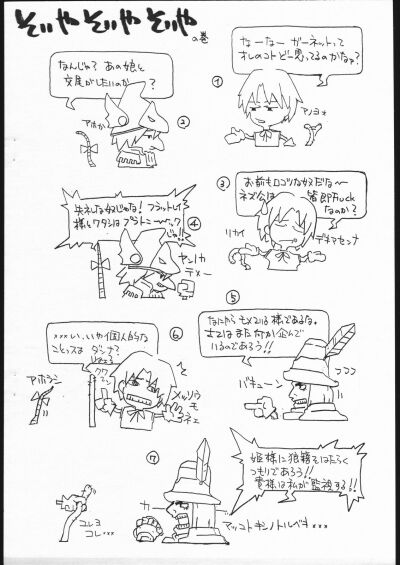 そいや そいや そいや
の巻
①
なーなー ガーネットって
オレのコト どー思ってるのかなァ?
アノヨォ
②
なんじゃ? あの娘と
交尾がしたいのか
?
アホか
③
お前もロコツな奴だな〜
ネズ公は 皆即Fuck
なのか?
リカイ
デキマセンナ
④
失礼な奴じゃな! フラットレイ
様とワタシはプラトニーック
じゃ!!
ヤンノカ
テメー
⑤
なにやらもめている様であるな。
さてはまた何か企んで
いるのであろう!!
バキューン
フフフフ
⑥
×××い、いや個人的な
ことっスよ ダンナ?
アホラシ
メッソウ
モ
ネェ
⑦
姫様に狼藉をはたらく
つもりであろう!!
貴様は私が監視する!!
カーッ
コレヨ
コレ・・・
マッコトキンノトルベキ×××